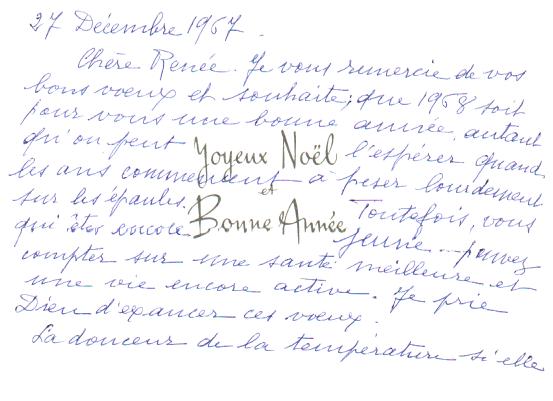 27 Décembre 1967.
Chère Renée. Je vous remercie de vos
bons voeux et souhaite, que 1968 soit
pour vous une bonne année, autant
qu'on peut l'espérer quand
Joyeux Noël
les ans commencent à peser lourdement
et
sur les épaules. Toutefois, vous
Bonne Année
qui êtes encore jeune pouvez
compter sur une santé meilleure et
une vie encore active. Je prie
Dieu d'exaucer ces voeux.
La douceur de la température si elle